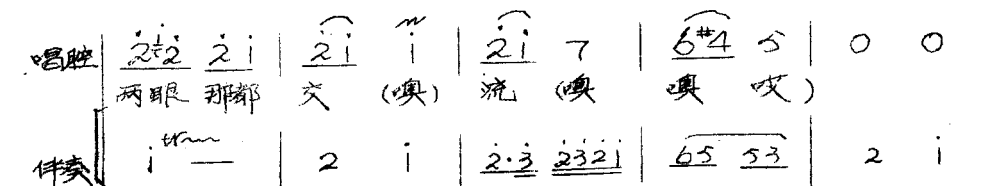 唱腔 | 2̇ 1̇ 2̇ 2̇ i | 2̇ i i | 2̇ i 7 | 6 #4 5 | 0 0
两眼 那都 交 (噢) 流 (噢 噢 哎)
伴奏 i tr — | 2 i | 2̇·3̇ 2̇3̇2̇i | 65 53 | 2 i